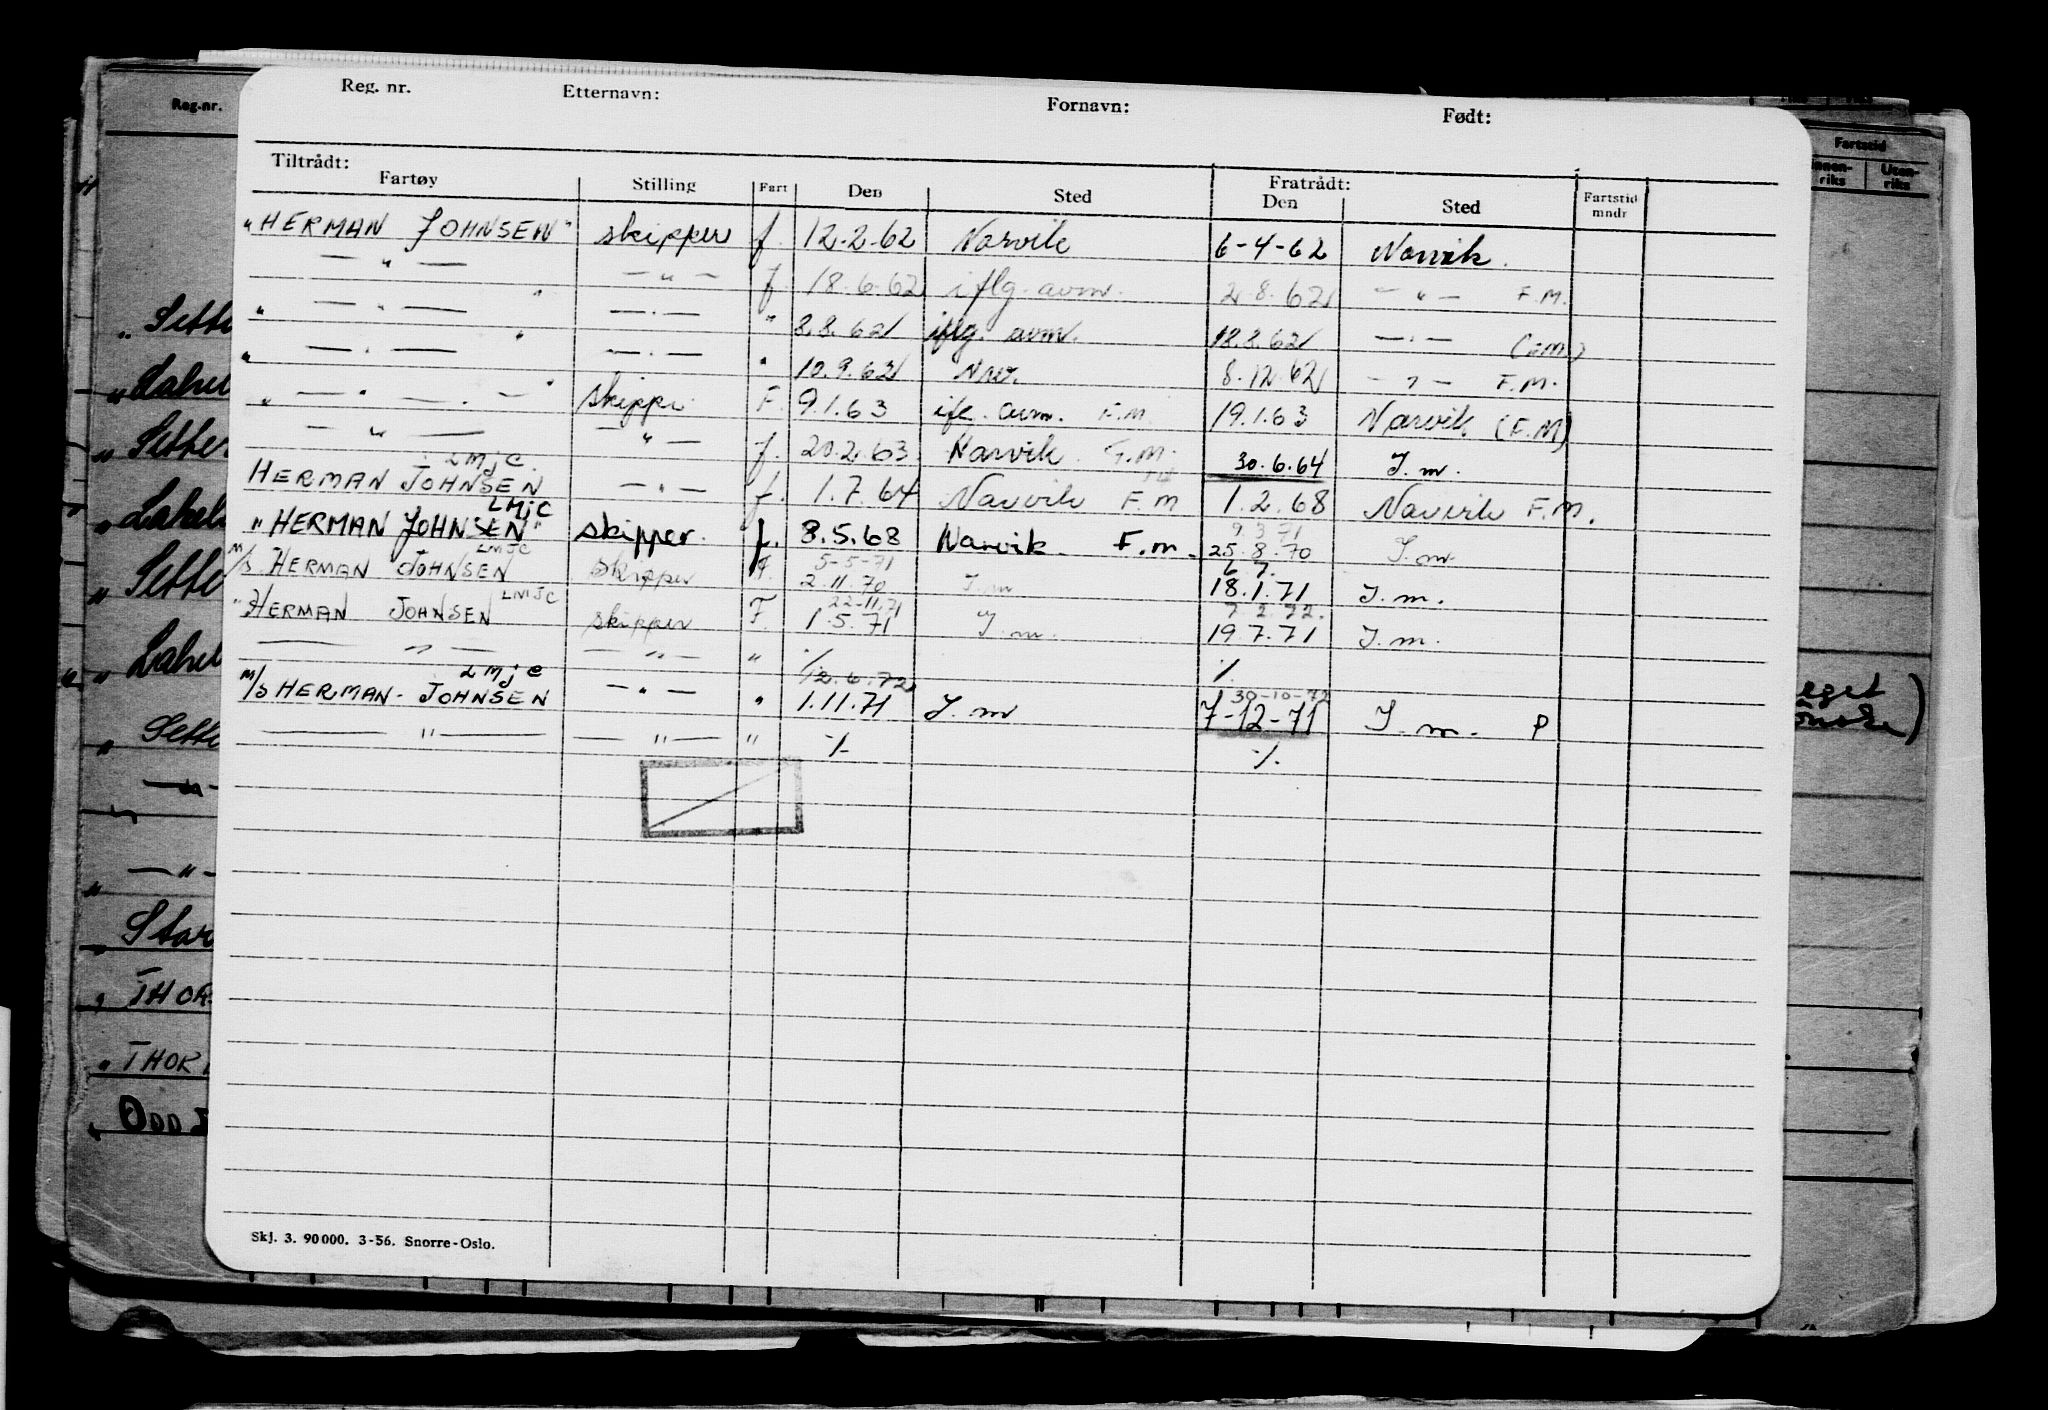 Reg. nr. Etternavn: Fornavn: Født:
Tiltrådt: Fratrådt:
Fartøy Stilling Fart Den Sted Den Sted Fartstid mndr
"HERMAN JOHNSEN" skipper f. 12-2-62 Narvik 6-4-62 Narvik.
— " — — " — f. 18.6.62 iflg. avm. 2.8.62 — " — F.M.
" — . — " — . — " 8.8.62 iflg. avm. 18.8.62 — . —
" — . — " — . — " 10.9.62 Nrv. 8.12.62 — " — F.M.
" — " — . — skipper F. 9.1.63 ifg. avm. F.M. 19.1.63 Narvik (F.M)
— " — — " — f. 20.2.63 Narvik F.M. 30.6.64 I.m.
HERMAN JOHNSEN LMJC — " — f. 1.7.64 Narvik F.M 1.2.68 Narvik F.M.
"HERMAN JOHNSEN" LMJC skipper. f. 8.5.68 Narvik. F.m. 25.8.70 I.m
9.3.71
M/S HERMAN JOHNSEN LMJC skipper F. 2.11.70 I.m 18.1.71 I.m.
5-5-71 6.7.
"HERMAN JOHNSEN LMJC skipper F. 1.5.71 I.m. 19.7.71 I.m.
22-11.71 7.2.72.
— " — — " — " ·/· ·/·
12.6.72 30-10-72
M/S HERMAN JOHNSEN LMJC — " — " 1.11.71 I.m 7-12-71 I.m. P
— " — — " — " ·/· ·/·
Skj. 3. 90000. 3-56. Snorre-Oslo.
Reg.-nr.
Fartstid
Innen-riks Uten-riks
THOR